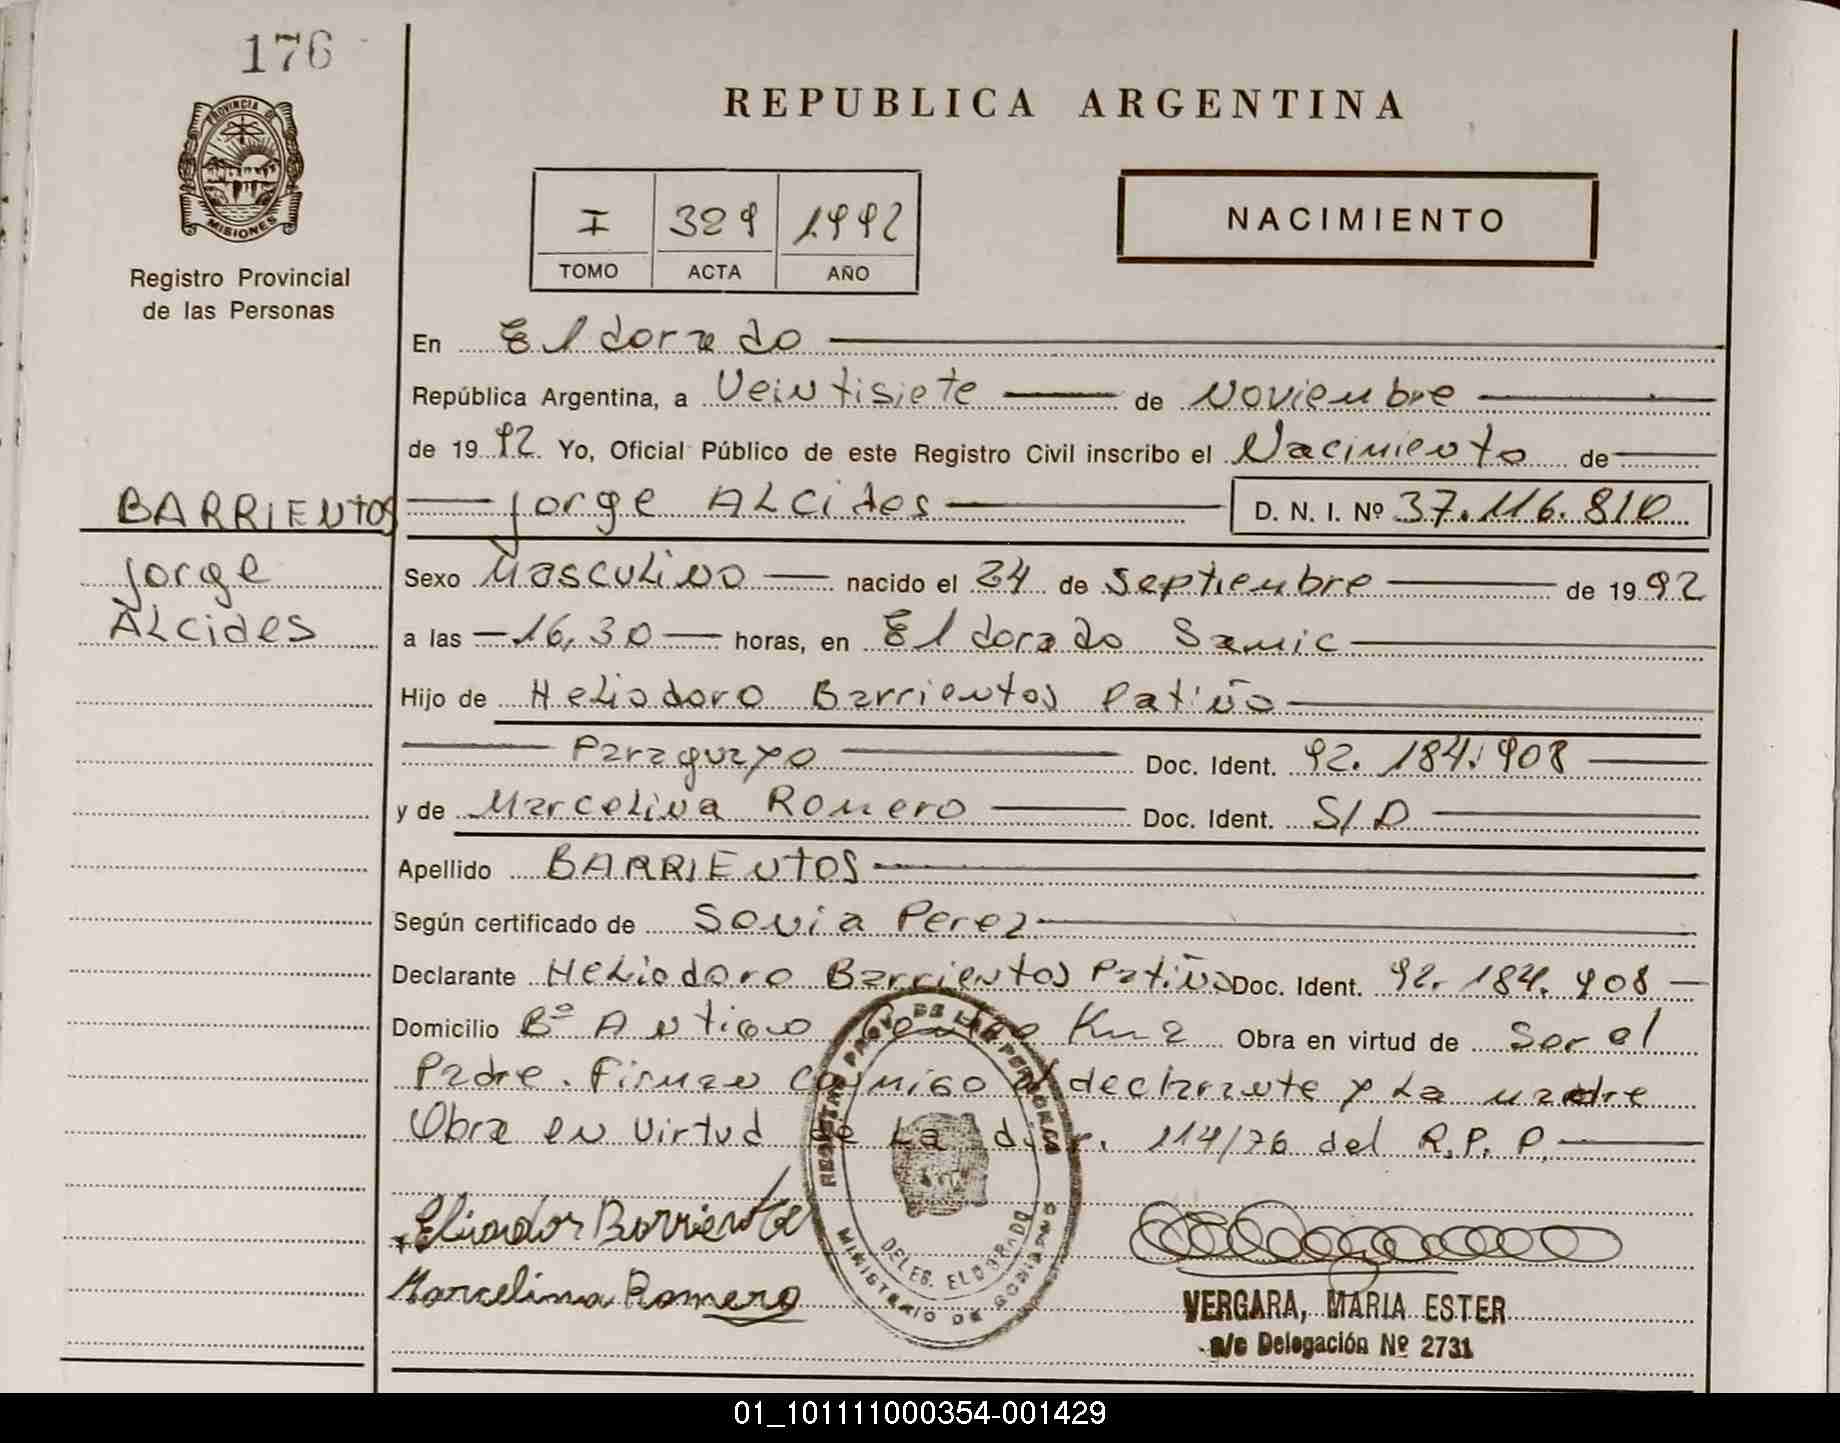 176
PROVINCIA DE
MISIONES
Registro Provincial
de las Personas
REPUBLICA ARGENTINA
I 329 1992
TOMO ACTA AÑO
NACIMIENTO
En Eldorado
República Argentina, a Veintisiete de Noviembre
de 1992 Yo, Oficial Público de este Registro Civil inscribo el Nacimiento de
BARRIENTOS
Jorge
ALcides
Jorge ALcides D. N. I. Nº 37.116.810
Sexo Masculino nacido el 24 de Septiembre de 1992
a las 16,30 horas, en Eldorado Samic
Hijo de Heliodoro Barrientos Patiño
Paraguayo Doc. Ident. 92.184.908
y de Marcelina Romero Doc. Ident. S/D
Apellido BARRIENTOS
Según certificado de Sonia Perez
Declarante Heliodoro Barrientos Patiño Doc. Ident. 92.184.908
Domicilio Bº Antiguo Km 2 Obra en virtud de Ser el
Padre. Firman conmigo el declarante y La madre
Obra en virtud de La 114/76 del R.P.P.
REGISTRO PROV. DE LAS PERSONAS
DELEG. ELDORADO
MINISTERIO DE GOBIERNO
Eliodor Barrientos
Marcelina Romero
VERGARA, MARIA ESTER
a/c Delegación Nº 2731
01_101111000354-001429